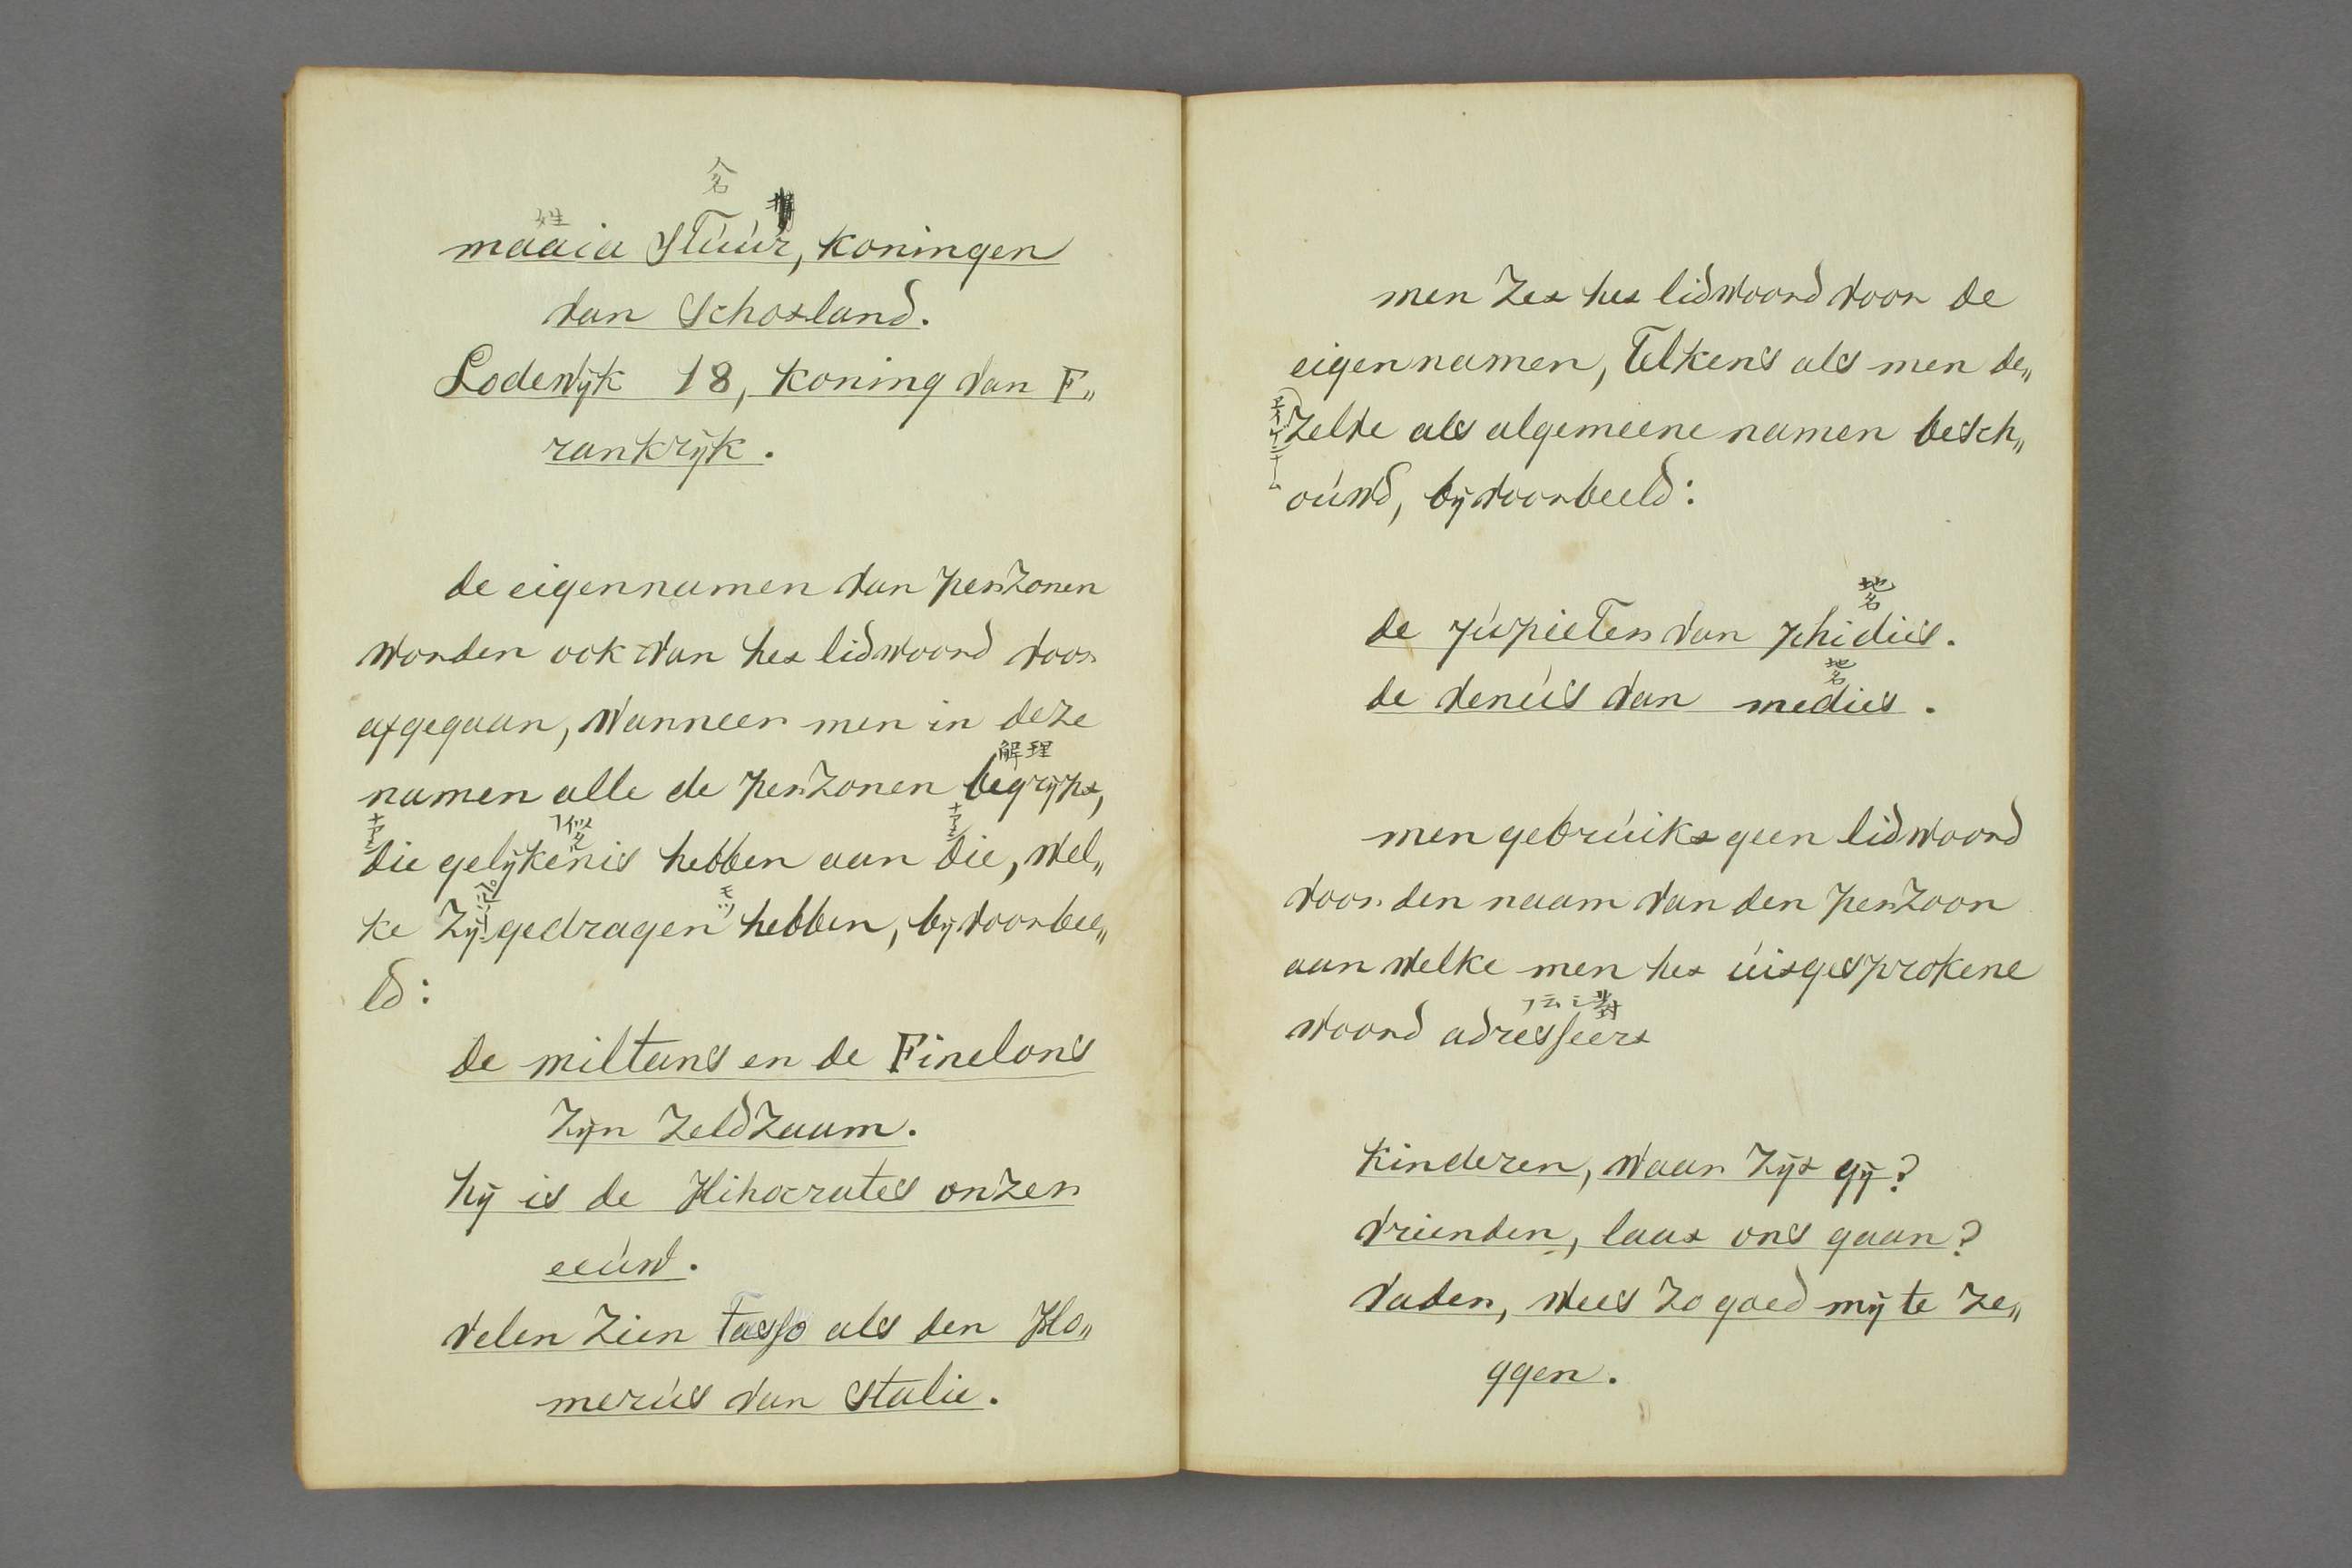 人名
姓
maaia Stúúr, koningen
van Schotland.
Lodewijk 18, koning van F„
rankrijk.
de eigennamen van perzonen
worden ook van het lidwoord voor
afgegaan, wanneer men in deze
解 理
namen alle de perzonen begrijpt,
die gelijkenis hebben aan die, wel„
モツ
ke zij gedragen hebben, bijvoorbee„
ld:
de miltans en de Finelons
zijn zeldzaam.
hij is de Hihocrates onzer
eeúw.
velen zien Tasso als den Ho„
merús van Italie.
men zet het lidwoord voor de
eigennamen, telkens als men de„
zelve als algemeene namen besch„
oúwd, bijvoorbeeld:
地名
de júpieter van phidiis.
地名
de venús van mediis.
men gebrúikt geen lidwoord
voor den naam van den perzoon
aan welke men het úitgesprokene
woord adresseert
kinderen, waar zijt gij?
vrienden, laat ons gaan?
vader, wees zo goed mij te ze„
ggen.